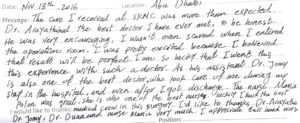 Date: Nov 13th, 2016 Location Abu Dhabi
Message: The care I received at SKMC was more then expected.
Dr. Arayathinal the best doctor I have ever met, to be honest.
He was very encouraging, I wasn't even scared when I entered
the operation room. I was pretty excited because I believed
that result will be perfect. I am so lucky that I went this
this experience with such a doctor. As his assistant Dr. Jony
is also one of the best doctor, who took care of me during my
stay in the hospital, and even after I got discharge. The nurse Maria
was great, she is also one of the best nurses. Lucky I had the
would like to thanks medical crew in this surgery. I'd like to thanks Dr. Arayathinal
Dr. Jony, Dr. Dunn and nurse Maria very much. I appreciate their hard work